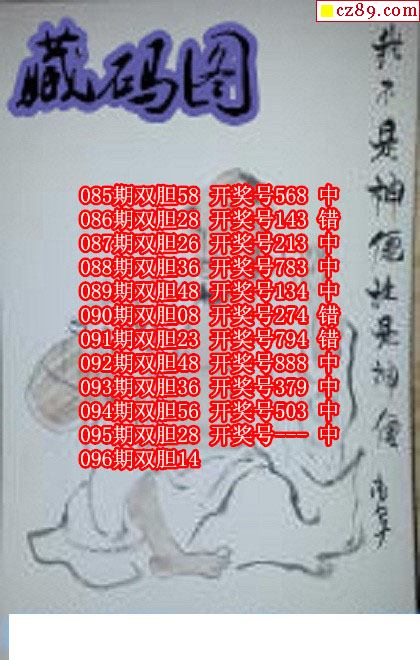 cz89.com
藏码图
我不是神便社是神便
085期双胆58 开奖号568 中
086期双胆28 开奖号143 错
087期双胆26 开奖号213 中
088期双胆36 开奖号783 中
089期双胆48 开奖号134 中
090期双胆08 开奖号274 错
091期双胆23 开奖号794 错
092期双胆48 开奖号888 中
093期双胆36 开奖号379 中
094期双胆56 开奖号503 中
095期双胆28 开奖号--- 中
096期双胆14